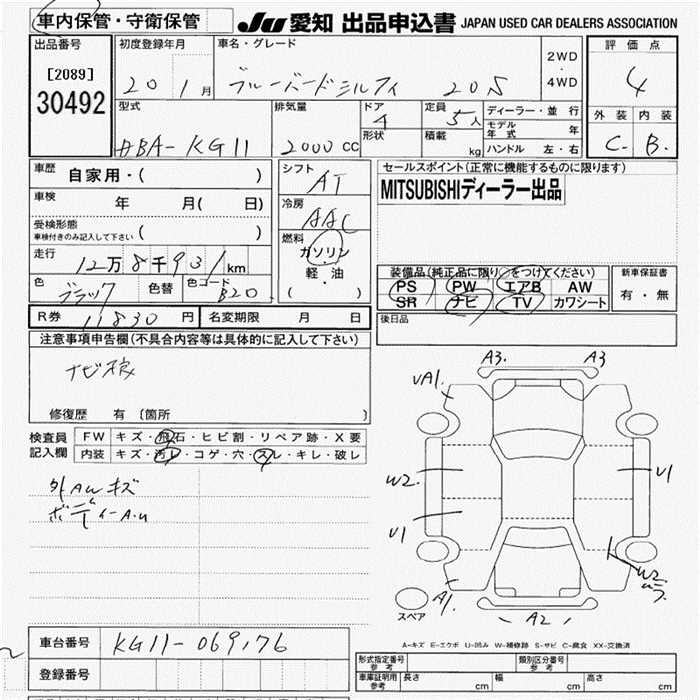 車内保管・守衛保管 JU 愛知 出品申込書 JAPAN USED CAR DEALERS ASSOCIATION
出品番号 初度登録年月 車名・グレード 2WD ・ 4WD 評価点
[2089] 20 1月 ブルーバードシルフィ 20S 4
30492 型式 排気量 ドア 4 定員 5人 ディーラー・並行 外装 内装
DBA-KG11 2000cc 形状 積載 kg モデル年式 年 C. B.
ハンドル 左・右
車歴 自家用・( ) シフト AT セールスポイント(正常に機能するものに限ります)
車検 年 月( 日) 冷房 AAC MITSUBISHIディーラー出品
受検形態 車検付きのみ記入して下さい ( ) 燃料 ガソリン
走行 12万8千931km 軽・油 装備品(純正品に限り○をつけてください) 新車保証書
色 ブラック 色替 色コード B20 ( ) PS PW エアB AW 有・無
SR ナビ TV カワシート
R券 11830円 名変期限 月 日 後日品
注意事項申告欄(不具合内容等は具体的に記入して下さい)
ナビ稼 A3. A3
VA1.
修復歴 有 〔箇所 〕
検査員記入欄 FW キズ・飛石・ヒビ割・リペア跡・X要
内装 キズ・汚レ・コゲ・穴・スレ・キレ・破レ
外AUキズ W2. U1
ボディーA.U U1
W2
A1. A2
スペア
車台番号 KG11-069176 A-キズ E-エクボ U-凹み W-補修跡 S-サビ C-腐食 XX-交換済
登録番号 形式指定番号 参考 類別区分番号 参考
車庫証明用 参考 長さ cm 幅 cm 高さ cm